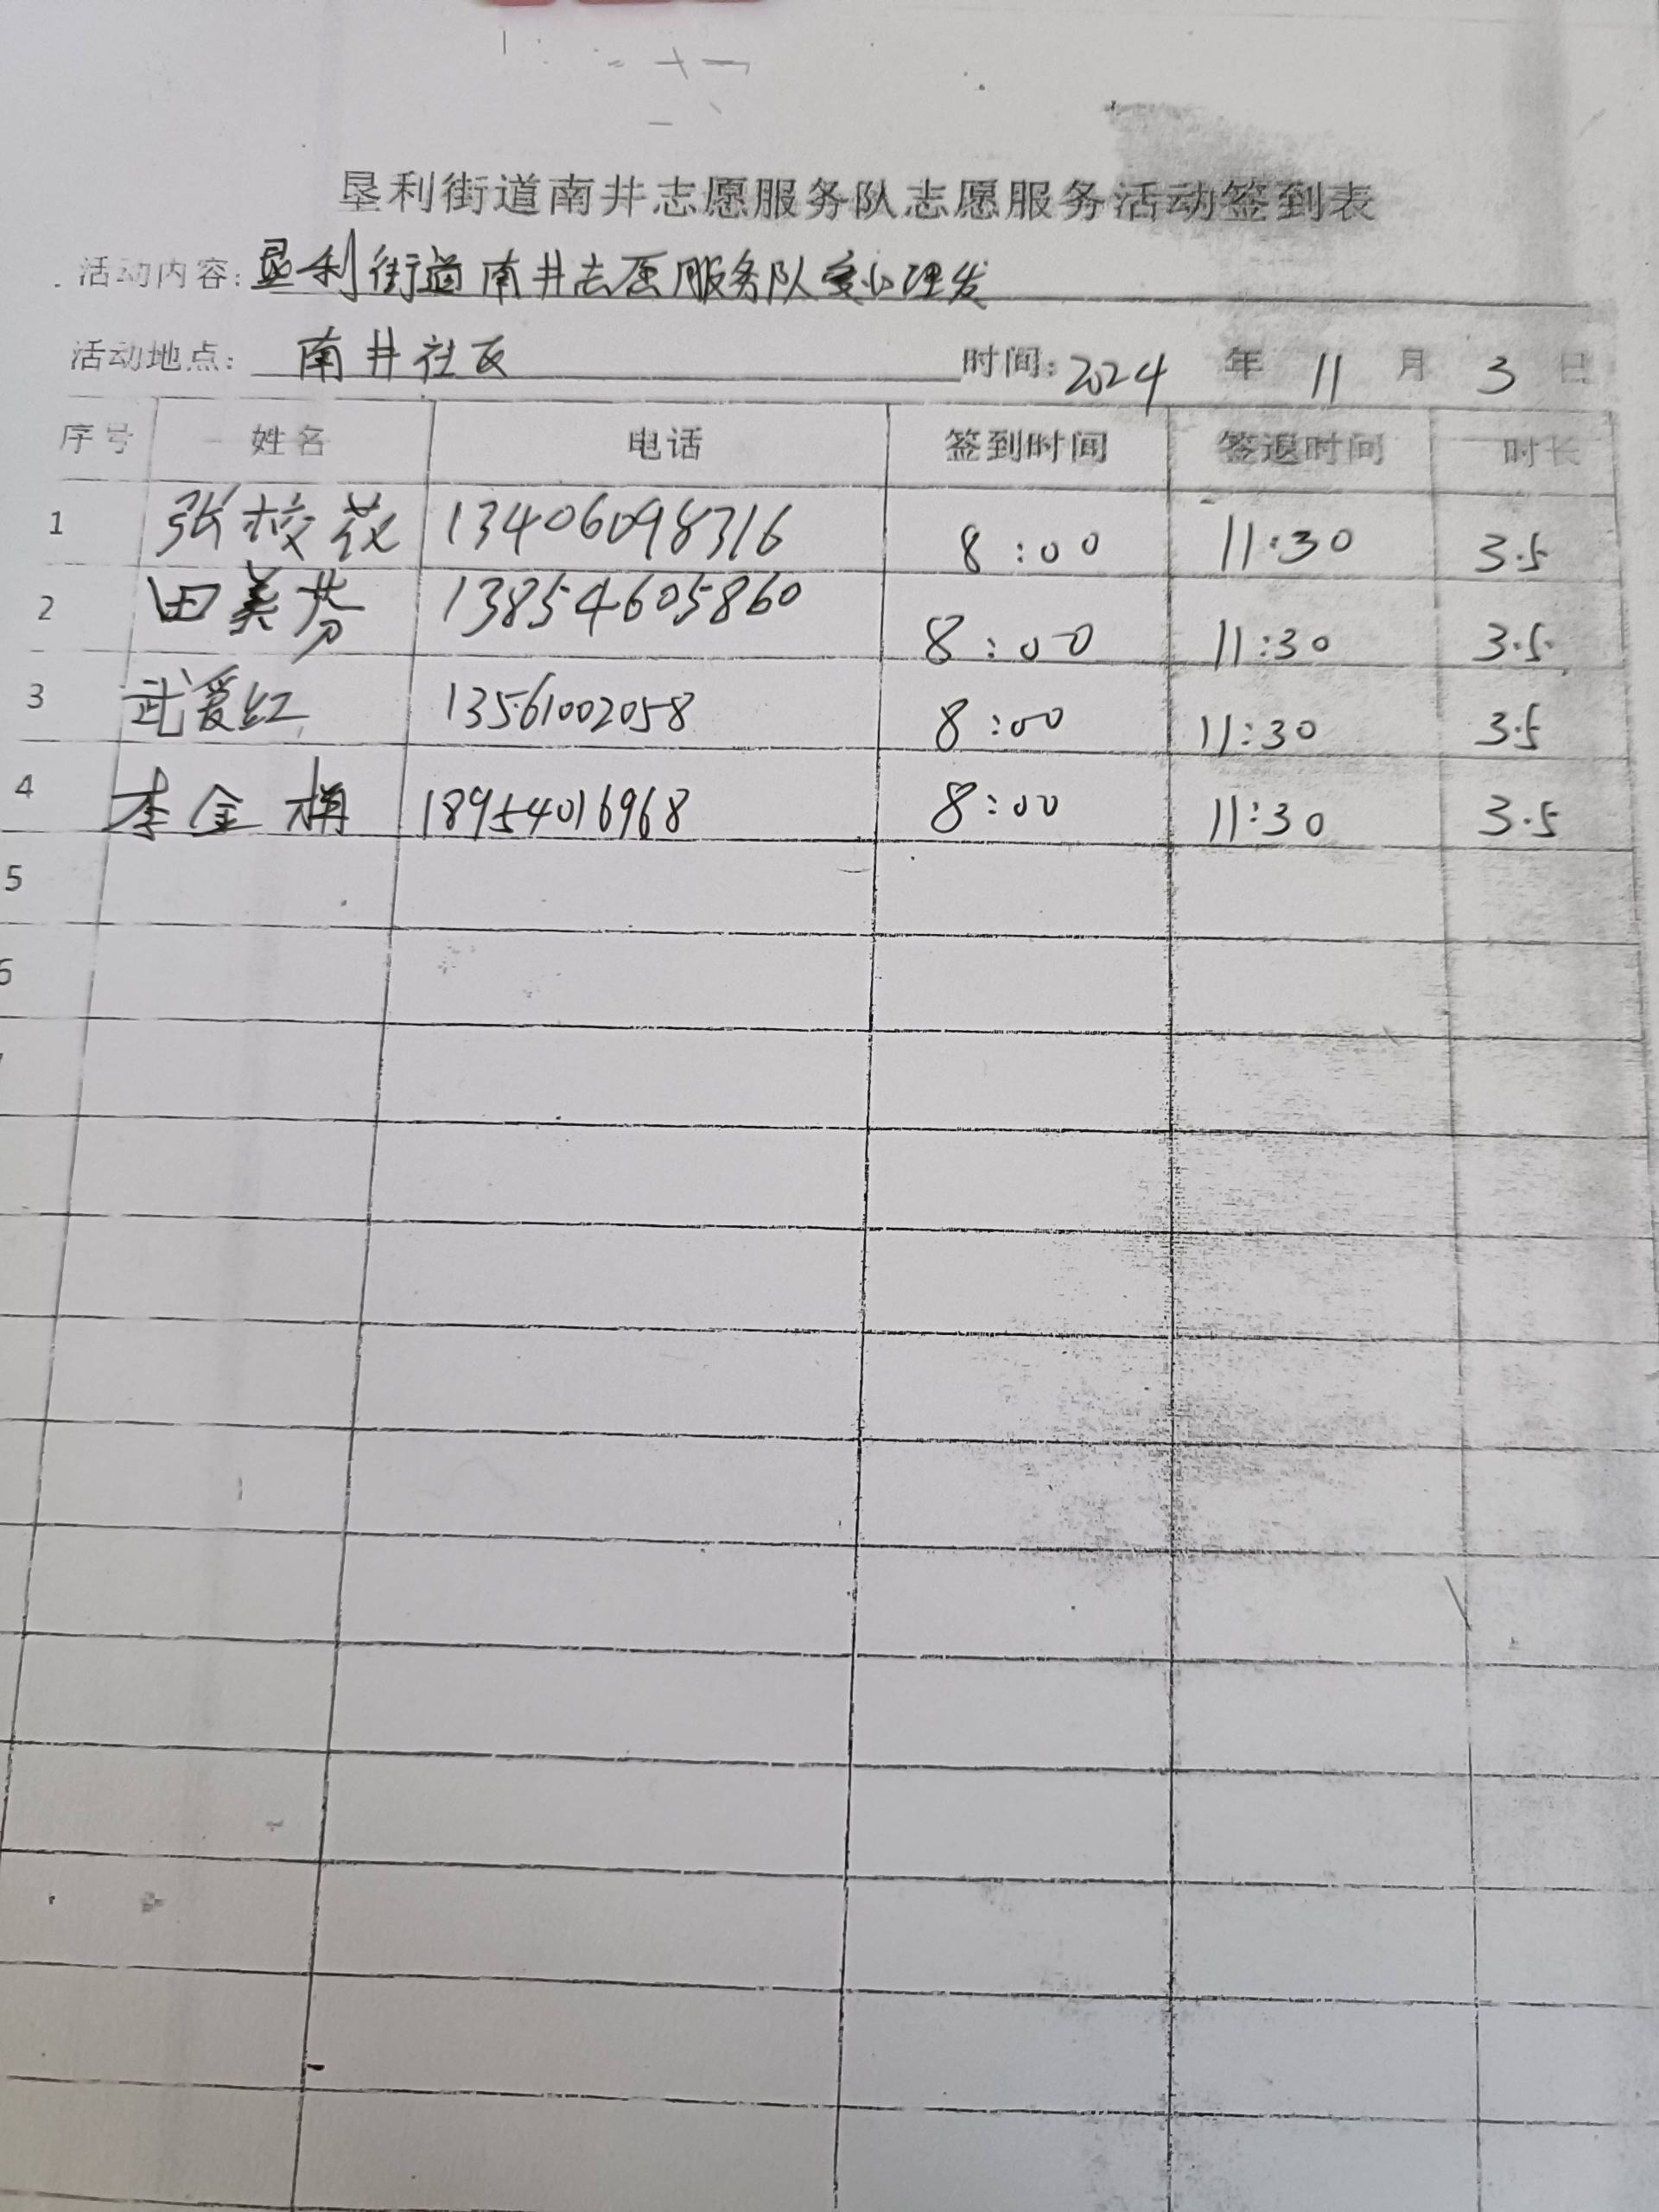 垦利街道南井志愿服务队志愿服务活动签到表
活动内容:垦利街道南井志愿服务队爱心理发
活动地点: 南井社区 时间:2024 年 11 月 3 日
序号 姓名 电话 签到时间 签退时间 时长
1 张校花 13406098316 8:00 11:30 3.5
2 田美芬 13854605860 8:00 11:30 3.5
3 武爱红 13561002058 8:00 11:30 3.5
4 李金梅 18954016968 8:00 11:30 3.5
5
6